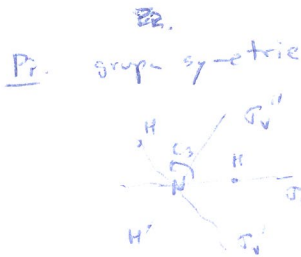 Př. grupa symetrie
σᵥ''
H
C₃
H
N
σ
H
σᵥ'